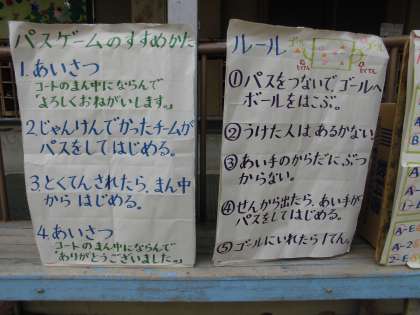 パスゲームのすすめかた
1.あいさつ
コートのまん中にならんで
"よろしくおねがいします。"
2.じゃんけんでかったチームが
パスをしてはじめる。
3.とくてんされたら、まん中
からはじめる。
4.あいさつ
コートのまん中にならんで
"ありがとうございました。"
ルール
①パスをつないで、ゴールへ
ボールをはこぶ。
②うけた人は、あるかない。
③あい手のからだにぶつ
からない。
④せんから出たら、あい手が
パスをしてはじめる。
⑤ゴールにいれたら1てん。
A-2